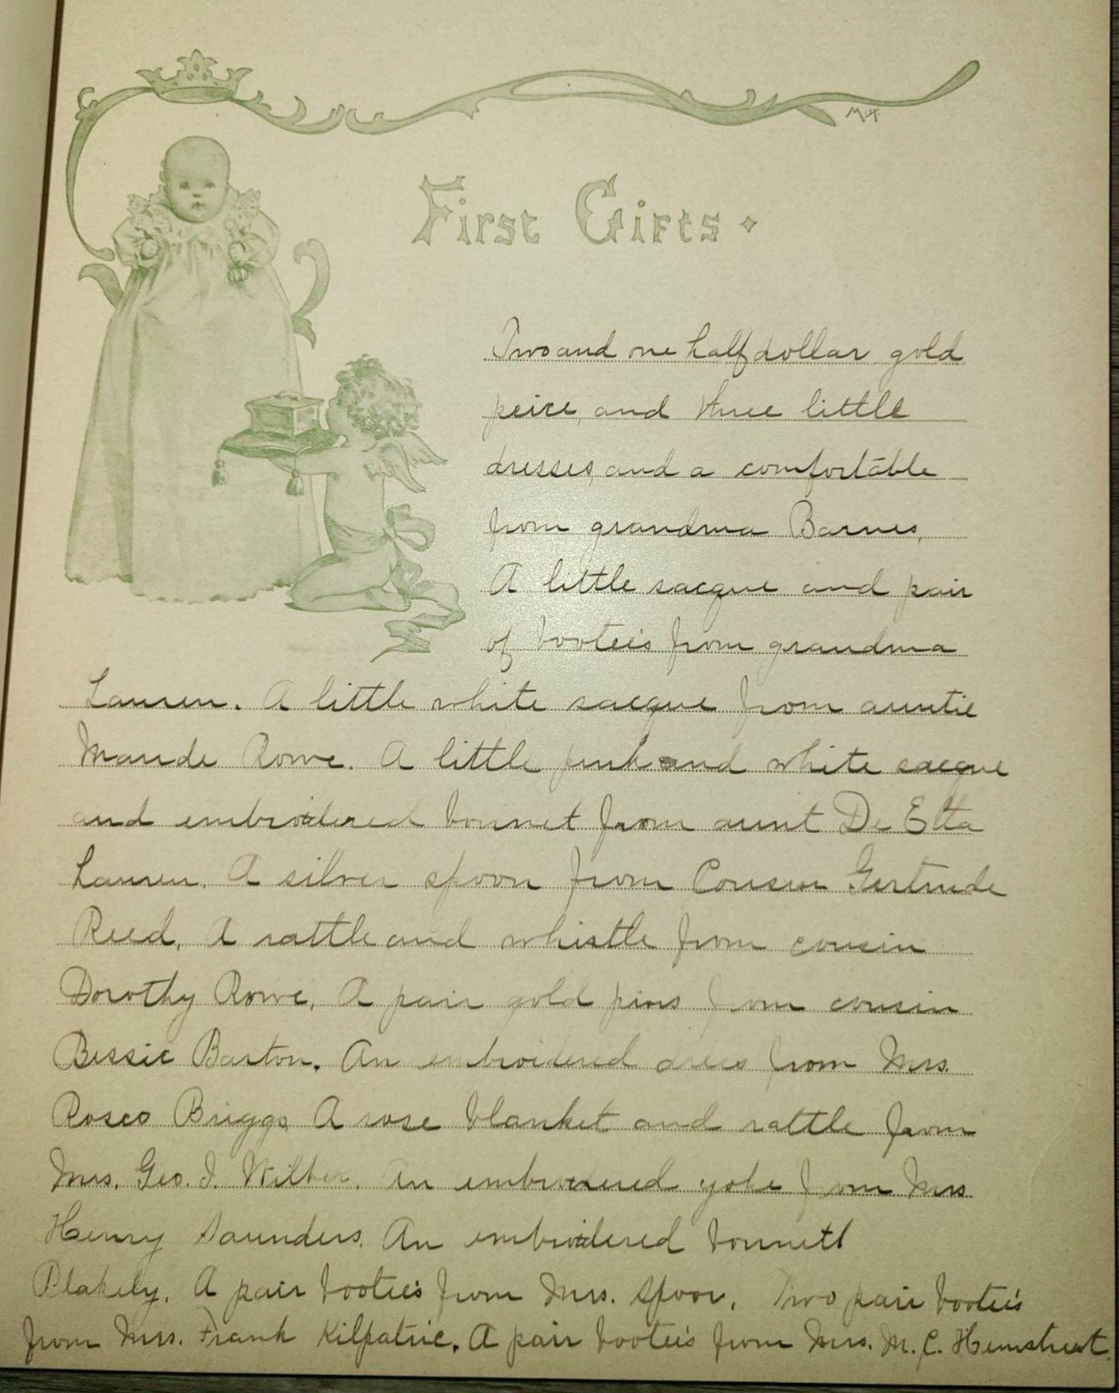 M.H
First Gifts.
Two and one half dollar gold
peice, and three little
dresses, and a comfortable
from grandma Barnes,
A little sacque and pair
of bootees from grandma
Lauren. A little white sacque from auntie
Maude Rowe. A little pink and white sacque
and embroidered bonnet from aunt De Etta
Lauren. A silver spoon from Cousin Gertrude
Reed, A rattle and whistle from cousin
Dorothy Rowe, A pair gold pins from cousin
Bessie Barton. An embroidered dress from Mrs.
Rosco Briggs A rose blanket and rattle from
Mrs. Geo. I. Wilber. An embroidered yoke from Mrs
Henry Saunders. An embroidered bonnett
Blakely. A pair bootees from Mrs. Spoor. Two pair bootees
from Mrs. Frank Kilpatric. A pair bootees from Mrs. M. C. Hemstreet.